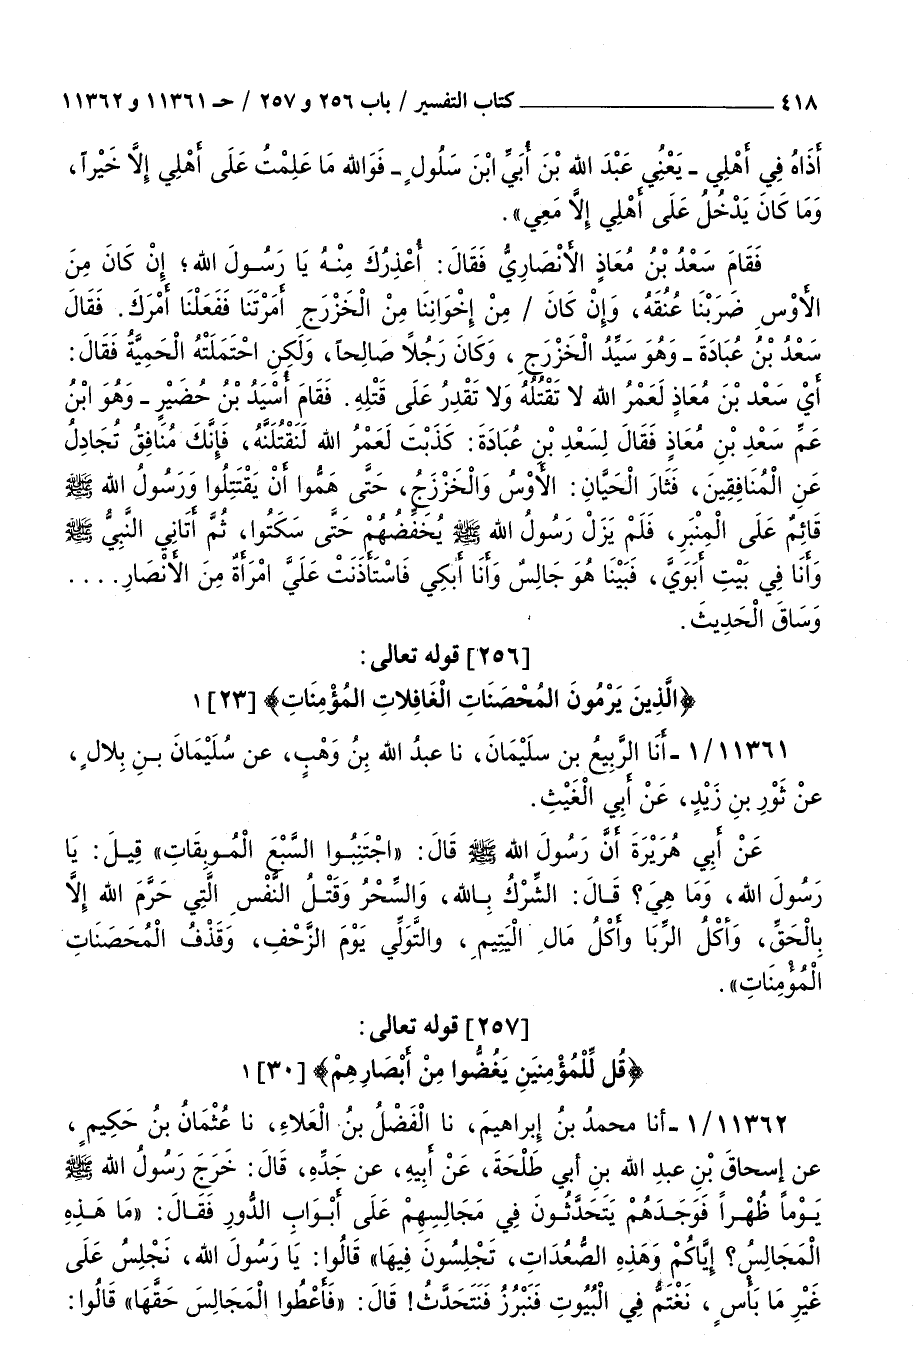 ٤١٨ ـــــــــــــــــ كتاب التفسير / باب ٢٥٦ و ٢٥٧ / حـ ١١٣٦١ و ١١٣٦٢
أَذَاهُ فِي أَهْلِي ـ يَعْنِي عَبْدَ الله بْنَ أُبَيِّ ابْنَ سَلُولٍ ـ فَوَالله مَا عَلِمْتُ عَلَى أَهْلِي إِلَّا خَيْراً،
وَمَا كَانَ يَدْخُلُ عَلَى أَهْلِي إِلَّا مَعِي».
فَقَامَ سَعْدُ بْنُ مُعَاذٍ الأَنْصَارِيُّ فَقَالَ: أُعْذِرُكَ مِنْهُ يَا رَسُولَ الله؛ إِنْ كَانَ مِنَ
الأَوْسِ ضَرَبْنَا عُنُقَهُ، وَإِنْ كَانَ / مِنْ إِخْوَانِنَا مِنْ الْخَزْرَجِ أَمَرْتَنَا فَفَعَلْنَا أَمْرَكَ. فَقَالَ
سَعْدُ بْنُ عُبَادَةَ ـ وَهُوَ سَيِّدُ الْخَزْرَجِ، وَكَانَ رَجُلاً صَالِحاً، وَلَكِنِ احْتَمَلَتْهُ الْحَمِيَّةُ فَقَالَ:
أَيْ سَعْد بْنَ مُعَاذٍ لَعَمْرُ الله لا تَقْتُلُهُ وَلا تَقْدِرُ عَلَى قَتْلِهِ. فَقَامَ أُسْيَدُ بْنُ حُضَيْرٍ ـ وَهُوَ ابْنُ
عَمِّ سَعْدِ بْنِ مُعَاذٍ فَقَالَ لِسَعْدِ بْنِ عُبَادَةَ: كَذَبْتَ لَعَمْرُ الله لَنَقْتُلَنَّهُ، فَإِنَّكَ مُنَافِقُ تُجَادِلُ
عَنِ الْمُنَافِقِينَ، فَثَارَ الْحَيَّانِ: الأَوْسُ وَالْخَزْرَجُ، حَتَّى هَمُّوا أَنْ يَقْتَتِلُوا وَرَسُولُ الله ﷺ
قَائِمُ عَلَى الْمِنْبَرِ، فَلَمْ يَزَلْ رَسُولُ الله ﷺ يُخَفِّضُهُمْ حَتَّى سَكَتُوا، ثُمَّ أَتَانِي النَّبِيُّ ﷺ
وَأَنَا فِي بَيْتِ أَبَوَيَّ، فَبَيْنَا هُوَ جَالِسُ وَأَنَا أَبْكِي فَاسْتَأْذَنَتْ عَلَيَّ امْرَأَةُ مِنَ الأَنْصَارِ. . . .
وَسَاقَ الْحَدِيثَ.
[٢٥٦] قوله تعالى:
﴿الَّذِينَ يَرْمُونَ المُحْصَنَاتِ الْغَافِلاتِ المُؤْمِنَاتِ﴾ [٢٣] ١
١/١١٣٦١ ـ أَنَا الرَّبِيعُ بن سليْمَانَ، نا عبدُ الله بنُ وَهْبٍ، عن سُلَيْمَانَ بنِ بِلالٍ،
عنْ ثَوْرِ بنِ زَيْدٍ، عَنْ أَبِي الْغَيْثِ.
عَنْ أَبِي هُرَيْرَةَ أَنَّ رَسُولَ الله ﷺ قَالَ: «اجْتَنِبُوا السَّبْعَ الْمُوبِقَاتِ» قِيلَ: يَا
رَسُولَ الله، وَمَا هِيَ؟ قَالَ: الشِّرْكُ بِالله، وَالسِّحْرُ وَقَتْلُ النَّفْسِ الَّتِي حَرَّمَ الله إِلَّا
بِالْحَقِّ، وَأَكْلُ الرِّبَا وأَكْلُ مَالِ الْيَتِيمِ، والتَّوَلِّي يَوْمَ الزَّحْفِ، وَقَذْفُ الْمُحَصَنَاتِ
الْمُؤْمِنَاتِ».
[٢٥٧] قوله تعالى:
﴿قُل لِّلْمُؤْمِنِيَنِ يَغُضُّوا مِنْ أَبْصَارِهِمْ﴾ [٣٠] ١
١/١١٣٦٢ ـ أنا محمدُ بنُ إبراهيمَ، نا الْفَضْلُ بنُ الْعَلاءِ، نا عُثْمَانُ بنُ حَكِيمٍ،
عن إسحاقَ بْنِ عبدِ الله بنِ أبي طَلْحَةَ، عَنْ أَبِيهِ، عن جَدِّهِ، قَالَ: خَرَجَ رَسُولُ الله ﷺ
يَوْماً ظُهْراً فَوَجَدَهُمْ يَتَحَدَّثُونَ فِي مَجَالِسِهِمْ عَلَى أَبْوَابِ الدُّورِ فَقَالَ: «مَا هَذِهِ
الْمَجَالِسُ؟ إِيَّاكُمْ وَهَذِهِ الصُّعُدَاتِ، تَجْلِسُونَ فِيهَا» قَالُوا: يَا رَسُولَ الله، نَجْلِسُ عَلَى
غَيْرِ مَا بَأْسٍ، نَغْتَمُّ فِي الْبُيُوتِ فَنَبْرُزُ فَنَتَحَدَّثُ! قَالَ: «فَأَعْطُوا الْمَجَالِسَ حَقَّهَا» قَالُوا: